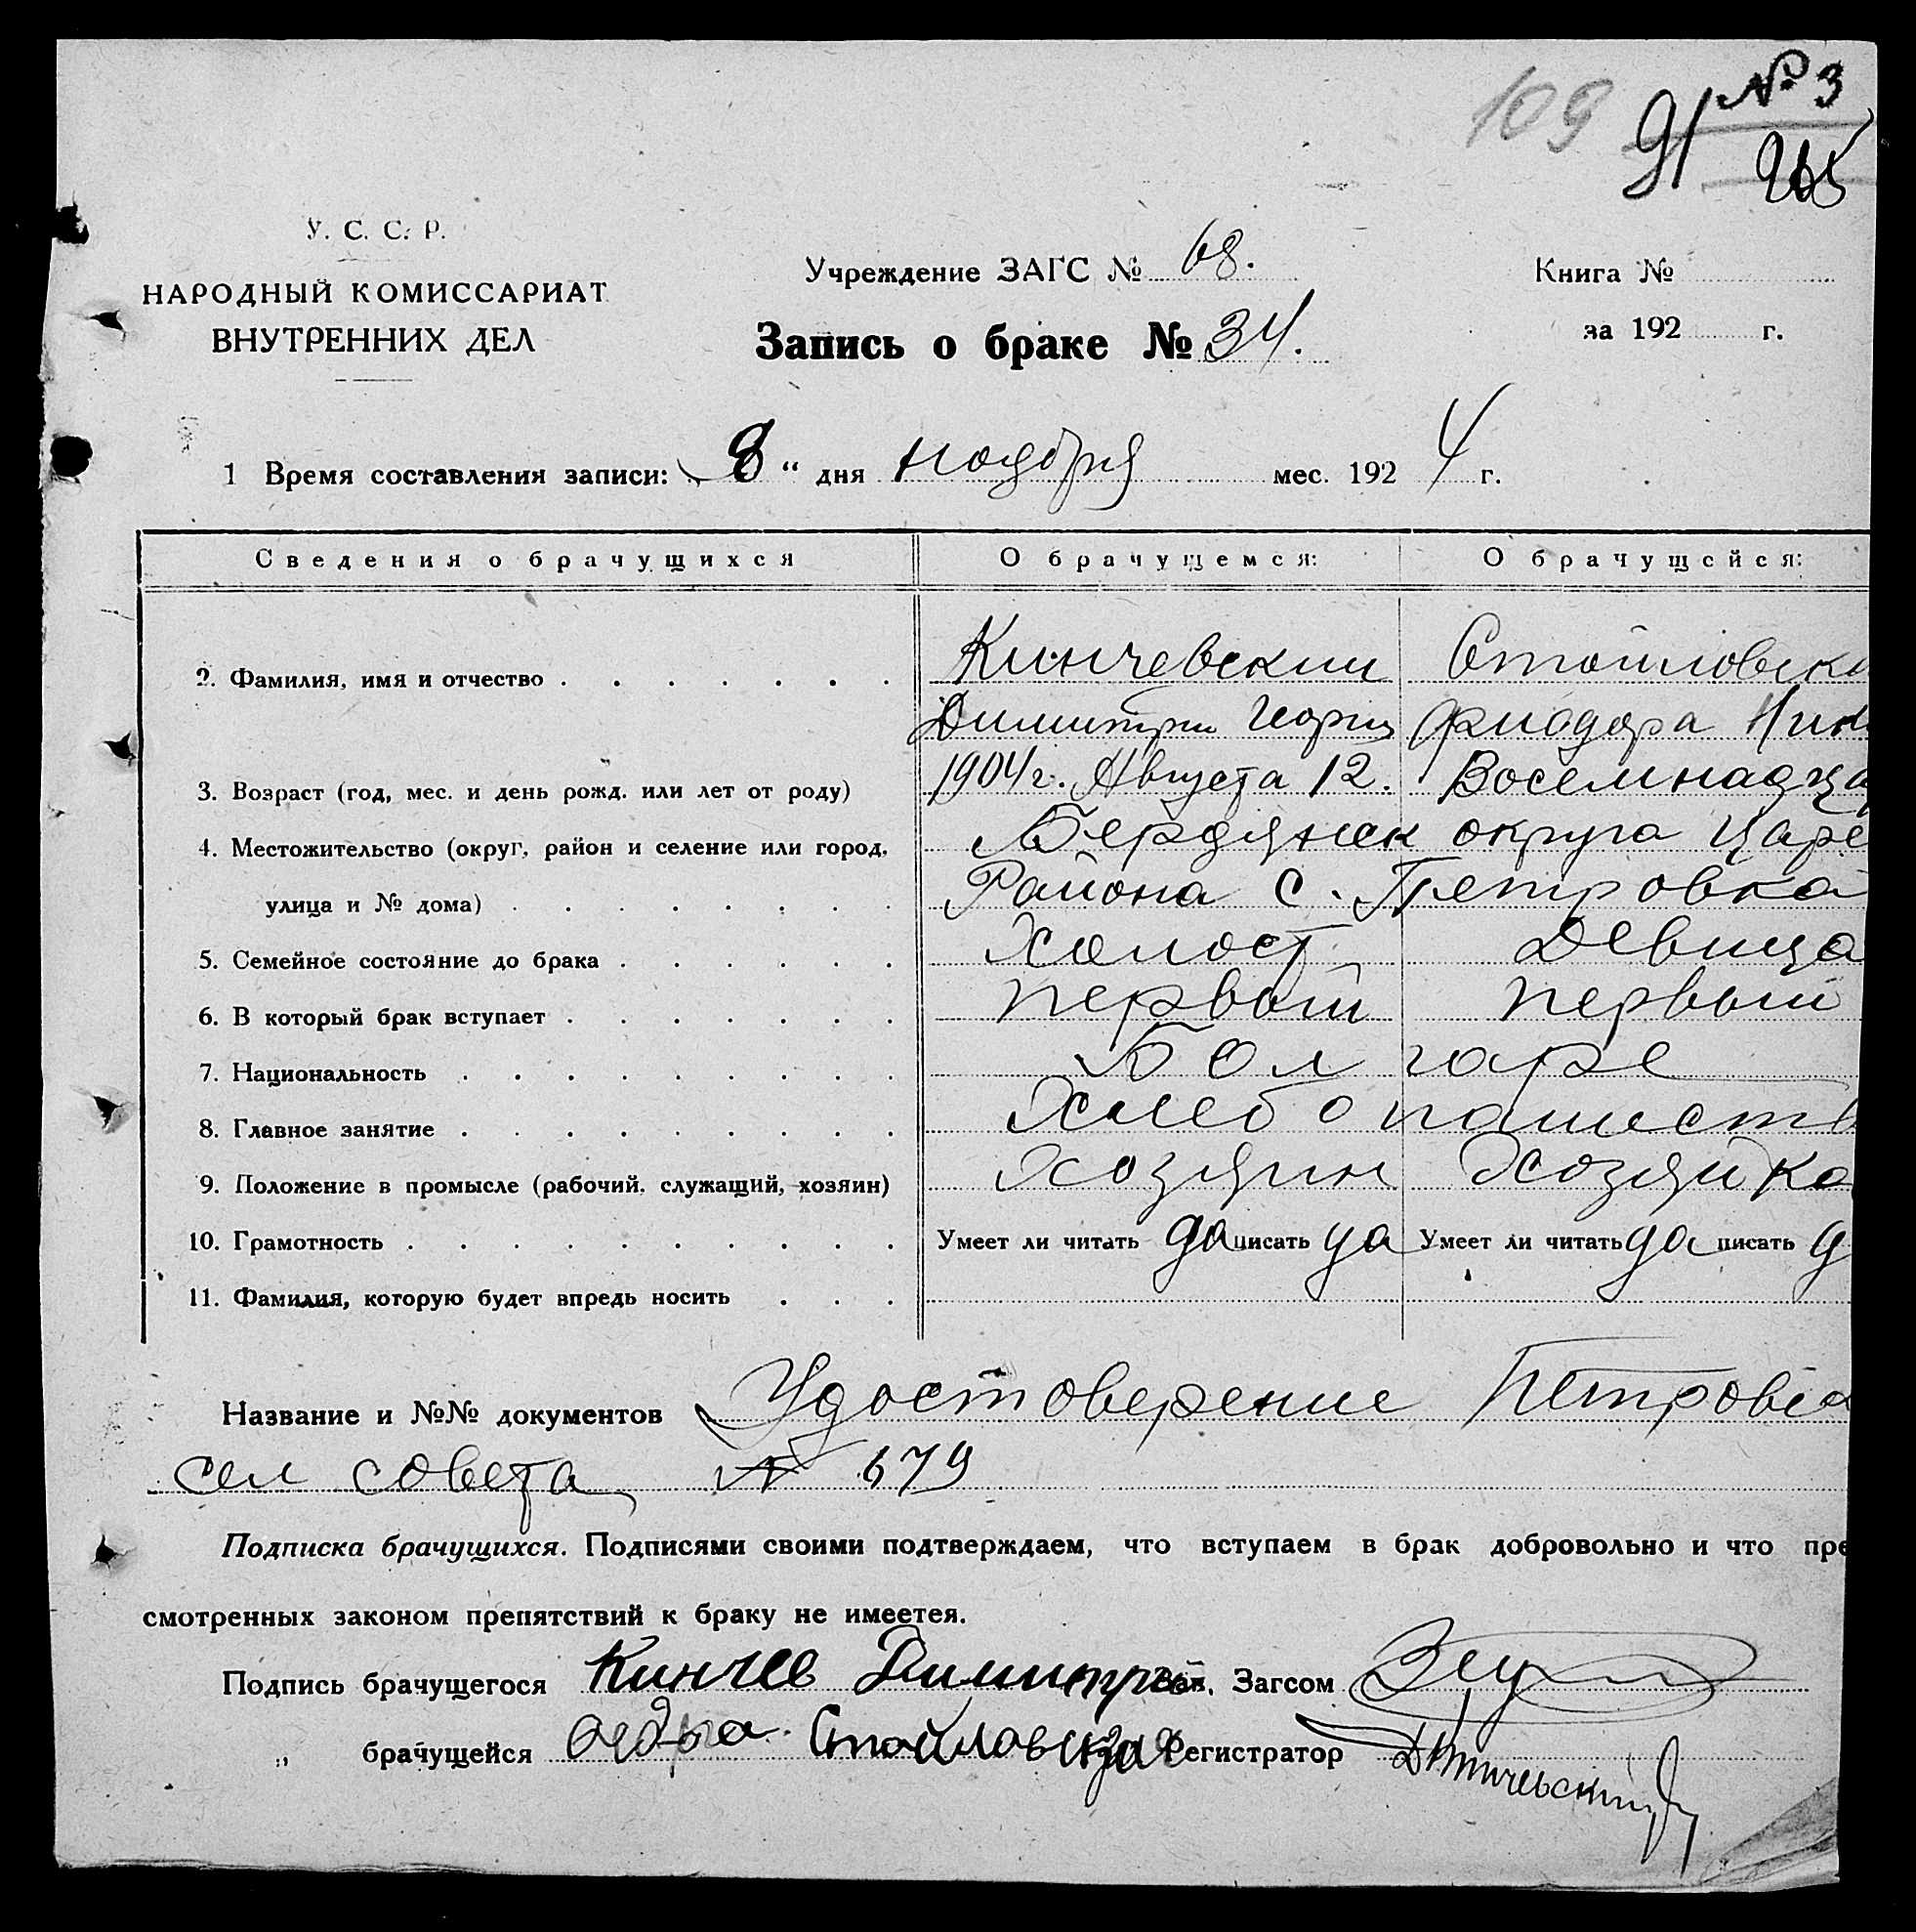 109 91 № 3
265
У. С. С. Р.
НАРОДНЫЙ КОМИССАРИАТ
ВНУТРЕННИХ ДЕЛ
Учреждение ЗАГС № 68.
Запись о браке № 34.
Книга №
за 192 г.
1 Время составления записи: „8“ дня ноября мес. 1924 г.
Сведения о брачущихся О брачущемся: О брачущейся:
2. Фамилия, имя и отчество Кинчевский Стоиловска
Димитри Георги Фиодора Ник
3. Возраст (год, мес. и день рожд. или лет от роду) 1904 г. Августа 12. Восемнадца
4. Местожительство (округ, район и селение или город, Бердянск округа Царе
улица и № дома) Района с. Петровка
5. Семейное состояние до брака Холост Девица
6. В который брак вступает первый первый
7. Национальность Болгаре
8. Главное занятие Хлебопашеств
9. Положение в промысле (рабочий, служащий, хозяин) Хозяин Хозяйка
10. Грамотность Умеет ли читать да писать да Умеет ли читать да писать д
11. Фамилия, которую будет впредь носить
Название и №№ документов Удостоверение Петровск
сел совета № 679
Подписка брачущихся. Подписями своими подтверждаем, что вступаем в брак добровольно и что пре
смотренных законом препятствий к браку не имеетея.
Подпись брачущегося Кинчев Димитръ Зав. Загсом
„ брачущейся Стойловская Регистратор